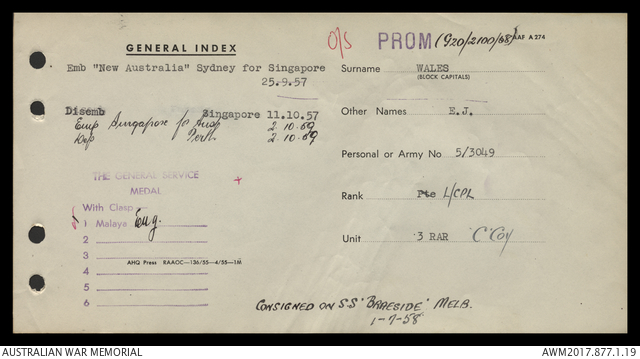 GENERAL INDEX
O/S PROM (920/2100/58) AAF A 274
Emb "New Australia" Sydney for Singapore
25.9.57
Disemb Singapore 11.10.57
Emp Singapore for Aust 2.10.59
Dep Perth 2.10.59
THE GENERAL SERVICE
MEDAL
With Clasp
1 Malaya Eng.
2
3
AHQ Press RAAOC—136/55—4/55—1M
4
5
6
Surname WALES
(BLOCK CAPITALS)
Other Names E.J.
Personal or Army No 5/3049
Rank Pte L/CPL
Unit 3 RAR 'C' Coy
CONSIGNED ON S.S 'BRAESIDE' MELB.
1-7-58
AUSTRALIAN WAR MEMORIAL
AWM2017.877.1.19